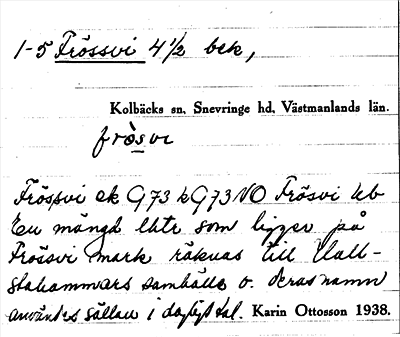 1-5 Frössvi 4 1/2 bek,
Kolbäcks sn, Snevringe hd, Västmanlands län.
frösvi
Frössvi ek G73 kG73NO Frösvi kb
En mängd lhtr som ligger på
Frössvi mark räknas till Hall-
stahammars samhälle o. deras namn
användes sällan i dagligt tal. Karin Ottosson 1938.